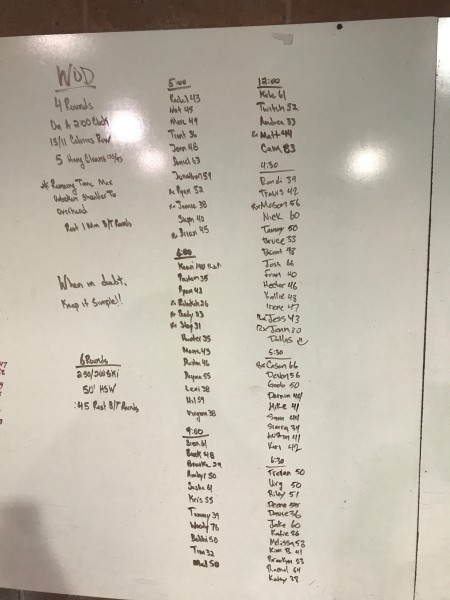 WOD
4 Rounds
On A 2:00 Clock
15/11 Calories Row
5 Hang Cleans
* Remaining Time Max
Shoulder To
Overhead
Rest 1 Min B/T Rounds
When in doubt,
Keep it Simple!!
6 Rounds
250/200 Ski
50' HSW
:45 Rest B/T Rounds
5:00
Rachel 43
Nat 45
Marc 49
Trent 36
Jenn 48
Daniel 63
Jonathan 59
Rx Ryan 52
Rx Jamie 38
Steph 40
Rx Brian 45
6:00
Kevin
Preston 35
Ryan 42
Rx Rebekah 26
Rx Brady 33
Rx Shay 31
Hunter 35
Marc 43
Dustin 46
Payne 55
Lexi 38
Hil 59
Meagan 38
9:00
Bren 61
Beck 48
Brooke 29
Amber 50
Sasha 61
Kris 55
Tammy 39
Woody 76
Bobbi 50
Tina 32
Mel 50
12:00
Kale 61
Twitch 52
Andrea 33
Rx Matt 44
Cam 83
4:30
Randi 39
Travis 42
Rx Mason 56
Nick 60
Tammy 50
Bruce 53
Brent 98
Josh 66
Fran 40
Hector 46
Kallie 43
Irene 47
Rx Jess 43
Rx Jenn 30
Dallas
5:30
Rx Cason 66
Devon 56
Gordo 50
Darren 44
Mike 41
Sam 44
Sierra 34
41
Kim 42
6:30
Tristan 50
Virg 50
Riley 51
Deena 55
Denise 36
Jake 60
Katie 86
Melissa 53
Kim B. 41
Brooklyn 33
Rachel 64
Kaley 38